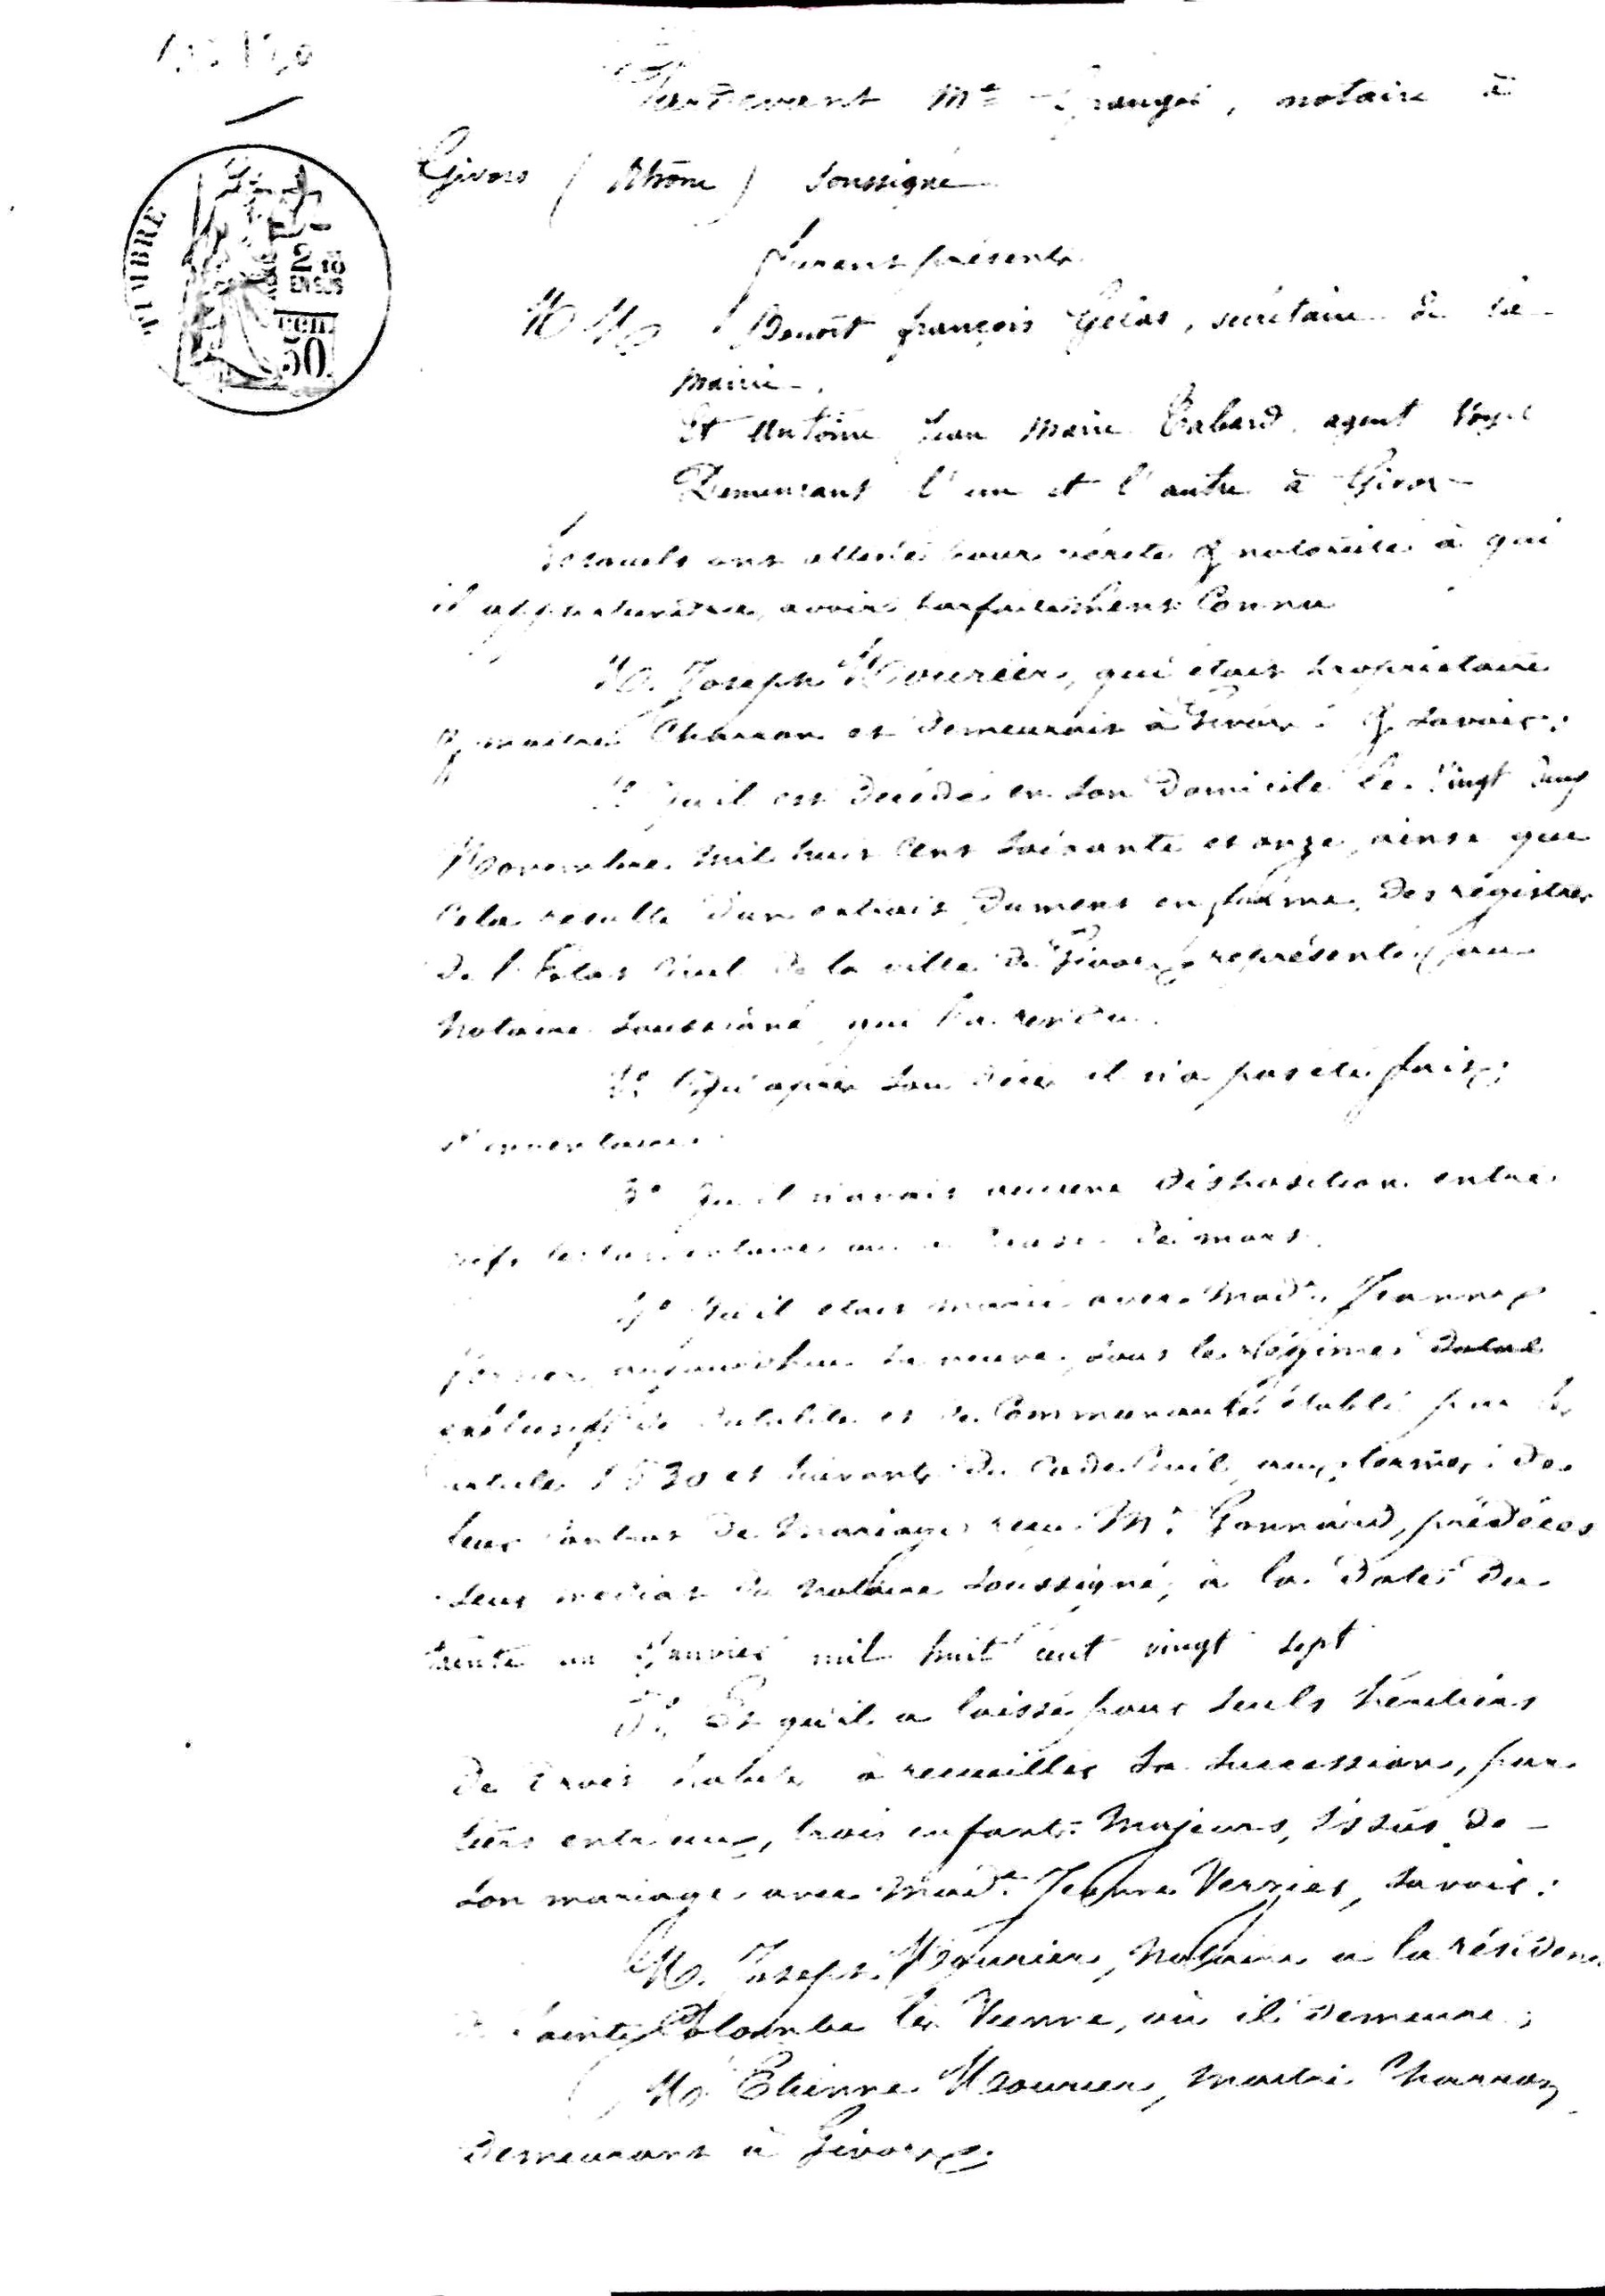 Pardevant Me Granger, notaire à
Givors (Rhône) soussigné
Furent présents
MM Benoît françois Gelas, secrétaire de la
mairie.
Et Antoine Jean Marie Tabard agent Voyer
Demeurant l'un et l'autre à Givors
Lesquels ont attesté pour vérité & notoriété à qui
il appartiendra, avoir parfaitement Connu
M. Joseph Mourier, qui était propriétaire
& maitre Charron et demeurait à Givors. & savoir:
1o Qu'il est décédé en son Domicile le Vingt Cinq
Novembre mil huit Cent soixante et onze, ainsi que
Cela résulte d'un extrait dument en forme, des registres
de l'Etat Civil de la ville de Givors, représenté au
Notaire soussigné qui l'a rendu.
2o Qu'après son décès il n'a pas été fait
d'inventaire.
3o Qu'il n'avait aucune Disposition entre
vifs testamentaires ou à Cause de mort.
4o Qu'il était marié avec Made Jeanne
aujourd'hui sa veuve, sous le Régime Dotal
exclusif de dotalité et de Communauté établi par les
articles 1530 et suivants du Code Civil aux termes de
leur Contrat de Mariage reçu Me Gonnard, prédéces
seur médiat du Notaire soussigné, à la Date du
trente un Janvier mil huit cent vingt sept
5o Et qu'il a laissé pour seuls héritiers
De Droit habiles à recueillir sa succession, par
tiers entre eux, trois enfants Majeurs, issus de
son mariage avec Made Jeanne Verzier, savoir:
M. Joseph Mourier, Notaire à la résidence
de Sainte Colombe les Vienne, où il Demeure;
M. Etienne Mourier, Maitre Charron
Demeurant à Givors.
TIMBRE
2 10
EN SUS
cen.
50